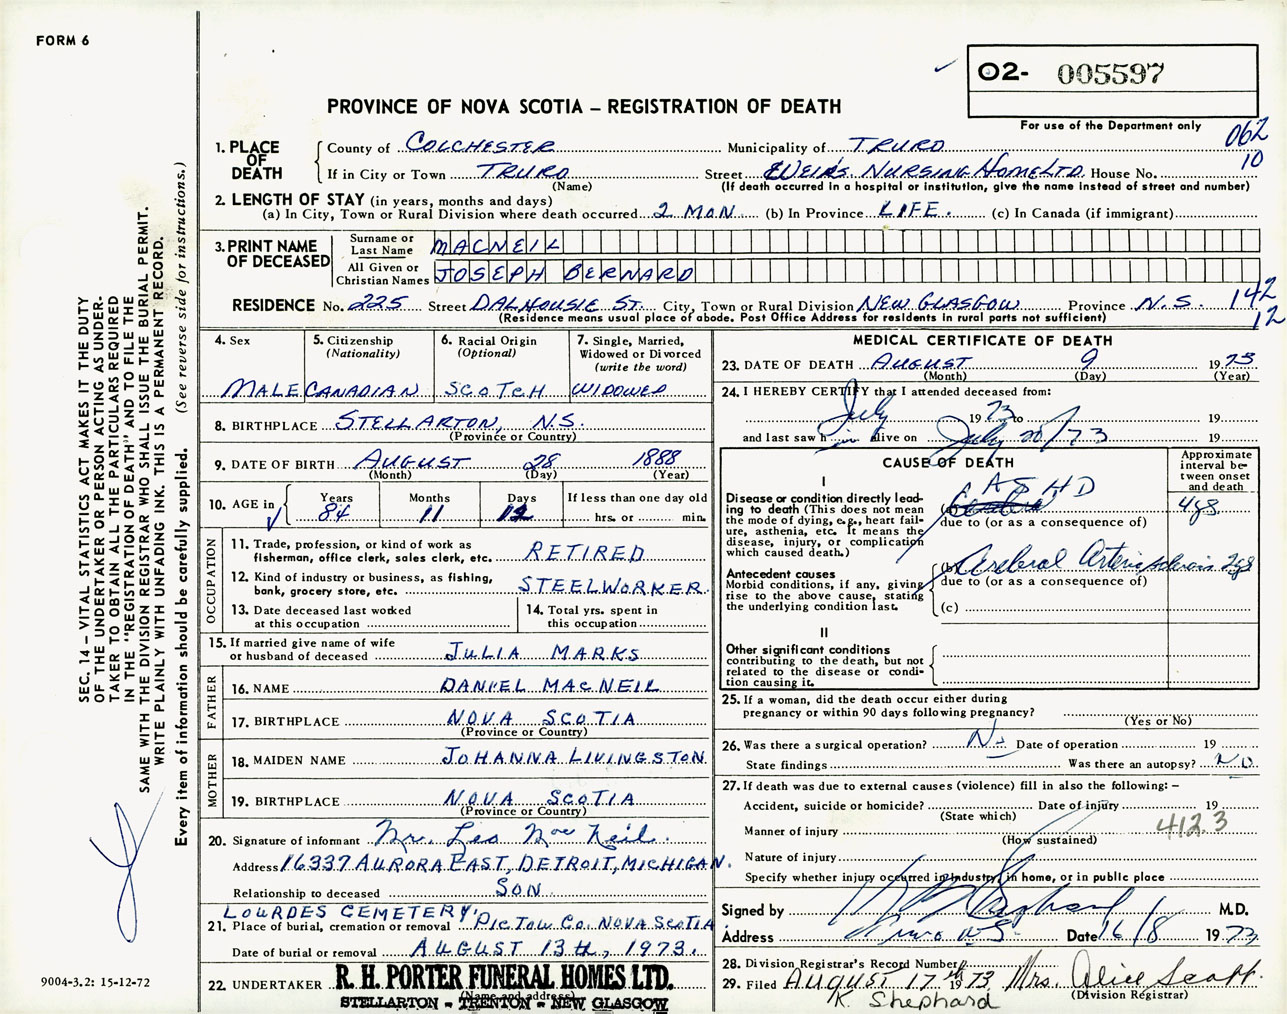 FORM 6
SEC. 14 – VITAL STATISTICS ACT MAKES IT THE DUTY
OF THE UNDERTAKER OR PERSON ACTING AS UNDER-
TAKER TO OBTAIN ALL THE PARTICULARS REQUIRED
IN THE "REGISTRATION OF DEATH" AND TO FILE THE
SAME WITH THE DIVISION REGISTRAR WHO SHALL ISSUE THE BURIAL PERMIT.
WRITE PLAINLY WITH UNFADING INK. THIS IS A PERMANENT RECORD.
Every item of information should be carefully supplied. (See reverse side for instructions.)
9004-3.2: 15-12-72
O2- 005597
For use of the Department only
PROVINCE OF NOVA SCOTIA – REGISTRATION OF DEATH
062
10
1. PLACE OF DEATH
County of COLCHESTER Municipality of TRURO
If in City or Town TRURO Street WEIR'S NURSING HOME LTD. House No.
(Name) (If death occurred in a hospital or institution, give the name instead of street and number)
2. LENGTH OF STAY (in years, months and days)
(a) In City, Town or Rural Division where death occurred 2 MON. (b) In Province LIFE. (c) In Canada (if immigrant)
3. PRINT NAME OF DECEASED
Surname or Last Name MACNEIL
All Given or Christian Names JOSEPH BERNARD
RESIDENCE No. 225 Street DALHOUSIE ST. City, Town or Rural Division NEW GLASGOW Province N.S.
(Residence means usual place of abode. Post Office Address for residents in rural parts not sufficient)
142
12
4. Sex 5. Citizenship (Nationality) 6. Racial Origin (Optional) 7. Single, Married, Widowed or Divorced (write the word)
MALE CANADIAN SCOTCH WIDOWED
8. BIRTHPLACE STELLARTON, N.S.
(Province or Country)
9. DATE OF BIRTH AUGUST 28 1888
(Month) (Day) (Year)
10. AGE in Years Months Days If less than one day old
84 11 12 hrs. or min.
OCCUPATION
11. Trade, profession, or kind of work as
fisherman, office clerk, sales clerk, etc. RETIRED
12. Kind of industry or business, as fishing,
bank, grocery store, etc. STEELWORKER.
13. Date deceased last worked
at this occupation
14. Total yrs. spent in
this occupation
15. If married give name of wife
or husband of deceased JULIA MARKS
FATHER
16. NAME DANIEL MACNEIL
17. BIRTHPLACE NOVA SCOTIA
(Province or Country)
MOTHER
18. MAIDEN NAME JOHANNA LIVINGSTON
19. BIRTHPLACE NOVA SCOTIA
(Province or Country)
20. Signature of informant Mr. Leo MacNeil.
Address 16337 AURORA EAST, DETROIT, MICHIGAN.
Relationship to deceased SON
LOURDES CEMETERY,
21. Place of burial, cremation or removal PICTOU CO. NOVA SCOTIA
Date of burial or removal AUGUST 13th, 1973.
22. UNDERTAKER R. H. PORTER FUNERAL HOMES LTD.
(Name and address)
STELLARTON – TRENTON – NEW GLASGOW
MEDICAL CERTIFICATE OF DEATH
23. DATE OF DEATH AUGUST 9 1973
(Month) (Day) (Year)
24. I HEREBY CERTIFY that I attended deceased from:
July 1973 to 19
and last saw h im alive on July 20/73 19
CAUSE OF DEATH
Approximate interval between onset and death
I
Disease or condition directly lead-
ing to death (This does not mean
the mode of dying, e.g., heart fail-
ure, asthenia, etc. It means the
disease, injury, or complication
which caused death.)
(a) ASHD 4 yrs
due to (or as a consequence of)
Antecedent causes
Morbid conditions, if any, giving
rise to the above cause, stating
the underlying condition last.
(b) Cerebral Arteriosclerosis 2 yrs
due to (or as a consequence of)
(c)
II
Other significant conditions
contributing to the death, but not
related to the disease or condi-
tion causing it.
25. If a woman, did the death occur either during
pregnancy or within 90 days following pregnancy?
(Yes or No)
26. Was there a surgical operation? No Date of operation 19
State findings Was there an autopsy? NO
27. If death was due to external causes (violence) fill in also the following: –
Accident, suicide or homicide? Date of injury 19
(State which)
412.3
Manner of injury
(How sustained)
Nature of injury
Specify whether injury occurred in industry, in home, or in public place
Signed by M.D.
Address Truro N.S. Date 16/8 1973
28. Division Registrar's Record Number
29. Filed AUGUST 17th 1973 Mrs. Alice Scott.
(Division Registrar)
K. Shephard